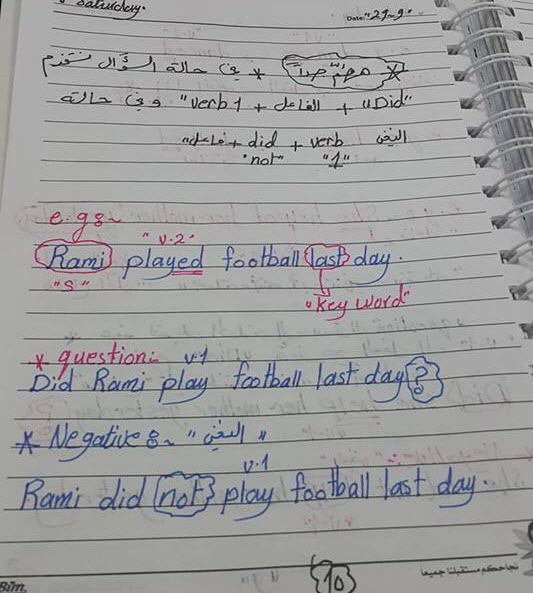 Saturday.
Date: "29-9"
* مهم جداً * في حالة السؤال نستخدم
"Did" + الفاعل + verb 1" وفي حالة
النفي verb + did + فاعل"
"1" "not"
e.g:~
"v.2"
Rami played football last day.
"S" "Key word"
* question:~ v.1
Did Rami play football last day?
* Negative:~ "النفي"
v.1
Rami did not play football last day.
Bim.
10
نجاحكم مستقبلنا جميعا